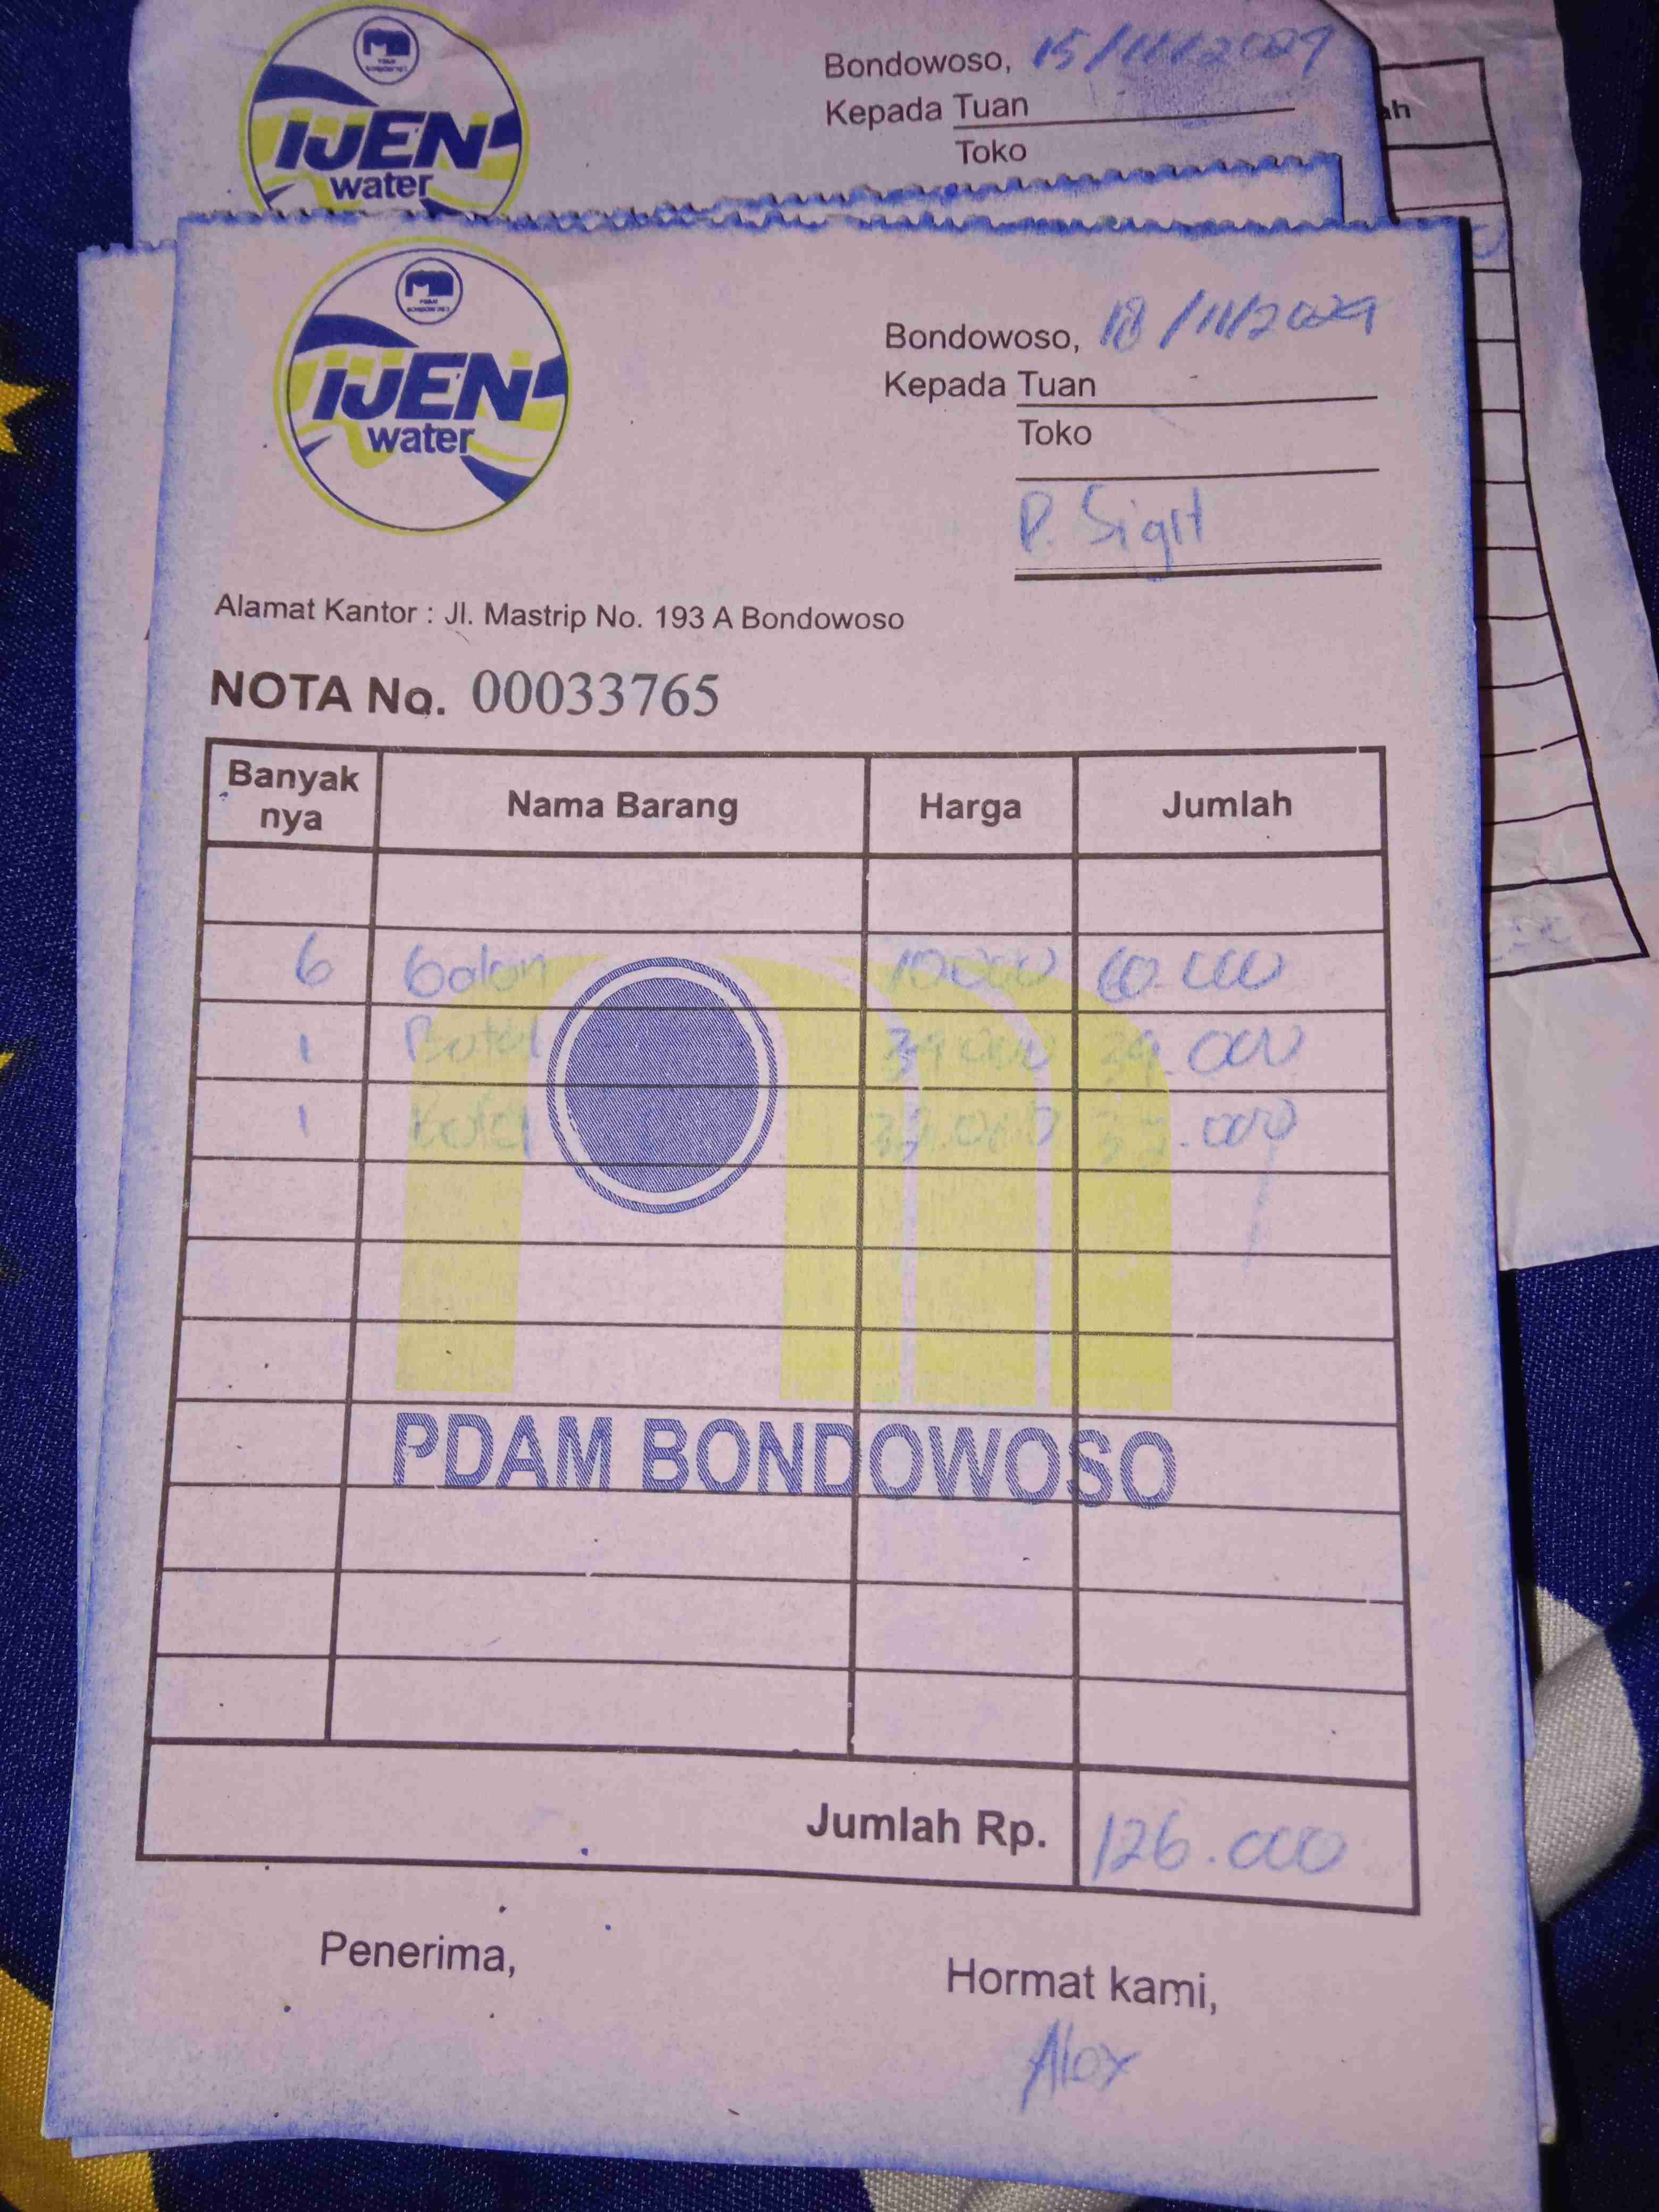 IJEN
water
Bondowoso, 15/11/2024
Kepada Tuan
Toko
ah
IJEN
water
Bondowoso, 18/11/2024
Kepada Tuan
Toko
P. Sigit
Alamat Kantor : Jl. Mastrip No. 193 A Bondowoso
NOTA No. 00033765
Banyak nya Nama Barang Harga Jumlah
6 Galon 10000 60.000
1 Botol 39.000 39.000
1 Botol 000
PDAM BONDOWOSO
Jumlah Rp. 126.000
Penerima,
Hormat kami,
Alex